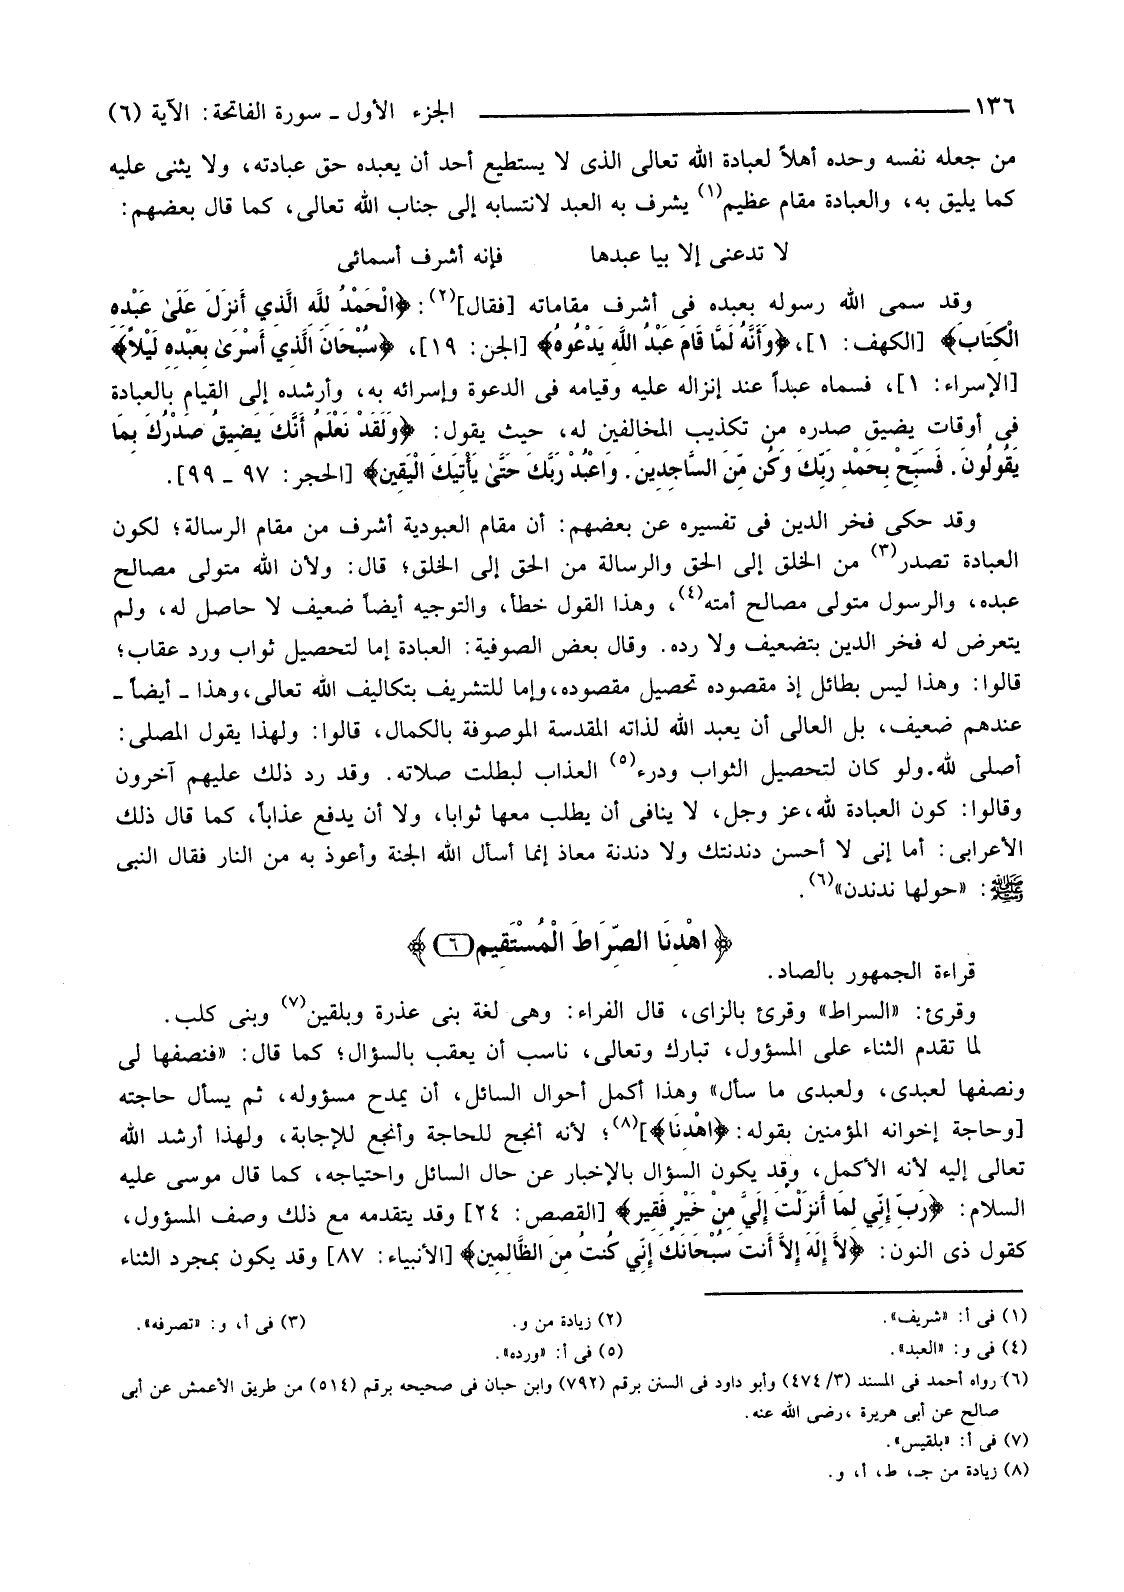 ١٣٦ ــــــــــــــــــ الجزء الأول ـ سورة الفاتحة: الآية (٦)
من جعله نفسه وحده أهلاً لعبادة الله تعالى الذى لا يستطيع أحد أن يعبده حق عبادته، ولا يثنى عليه
كما يليق به، والعبادة مقام عظيم(١) يشرف به العبد لانتسابه إلى جناب الله تعالى، كما قال بعضهم:
لا تدعنى إلا بيا عبدها فإنه أشرف أسمائى
وقد سمى الله رسوله بعبده فى أشرف مقاماته [فقال](٢): ﴿الْحَمْدُ لِلَّهِ الَّذِي أَنزَلَ عَلَىٰ عَبْدِهِ
الْكِتَابَ﴾ [الكهف: ١]، ﴿وَأَنَّهُ لَمَّا قَامَ عَبْدُ اللَّهِ يَدْعُوهُ﴾ [الجن: ١٩]، ﴿سُبْحَانَ الَّذِي أَسْرَىٰ بِعَبْدِهِ لَيْلاً﴾
[الإسراء: ١]، فسماه عبداً عند إنزاله عليه وقيامه فى الدعوة وإسرائه به، وأرشده إلى القيام بالعبادة
فى أوقات يضيق صدره من تكذيب المخالفين له، حيث يقول: ﴿وَلَقَدْ نَعْلَمُ أَنَّكَ يَضِيقُ صَدْرُكَ بِمَا
يَقُولُونَ. فَسَبِّحْ بِحَمْدِ رَبِّكَ وَكُن مِّنَ السَّاجِدِينَ. وَاعْبُدْ رَبَّكَ حَتَّىٰ يَأْتِيَكَ الْيَقِينُ﴾ [الحجر: ٩٧ ـ ٩٩].
وقد حكى فخر الدين فى تفسيره عن بعضهم: أن مقام العبودية أشرف من مقام الرسالة؛ لكون
العبادة تصدر(٣) من الخلق إلى الحق والرسالة من الحق إلى الخلق؛ قال: ولأن الله متولى مصالح
عبده، والرسول متولى مصالح أمته(٤)، وهذا القول خطأ، والتوجيه أيضاً ضعيف لا حاصل له، ولم
يتعرض له فخر الدين بتضعيف ولا رده. وقال بعض الصوفية: العبادة إما لتحصيل ثواب ورد عقاب؛
قالوا: وهذا ليس بطائل إذ مقصوده تحصيل مقصوده، وإما للتشريف بتكاليف الله تعالى، وهذا ـ أيضاً ـ
عندهم ضعيف، بل العالى أن يعبد الله لذاته المقدسة الموصوفة بالكمال، قالوا: ولهذا يقول المصلى:
أصلى لله. ولو كان لتحصيل الثواب ودرء(٥) العذاب لبطلت صلاته. وقد رد ذلك عليهم آخرون
وقالوا: كون العبادة لله، عز وجل، لا ينافى أن يطلب معها ثوابا، ولا أن يدفع عذاباً، كما قال ذلك
الأعرابى: أما إنى لا أحسن دندنتك ولا دندنة معاذ إنما أسأل الله الجنة وأعوذ به من النار فقال النبى
ﷺ: «حولها ندندن»(٦).
﴿اهْدِنَا الصِّرَاطَ الْمُسْتَقِيمَ (٦)﴾
قراءة الجمهور بالصاد.
وقرئ: «السراط» وقرئ بالزاى، قال الفراء: وهى لغة بنى عذرة وبلقين(٧) وبنى كلب.
لما تقدم الثناء على المسؤول، تبارك وتعالى، ناسب أن يعقب بالسؤال؛ كما قال: «فنصفها لى
ونصفها لعبدى، ولعبدى ما سأل» وهذا أكمل أحوال السائل، أن يمدح مسؤوله، ثم يسأل حاجته
[وحاجة إخوانه المؤمنين بقوله: ﴿اهْدِنَا﴾](٨)؛ لأنه أنجح للحاجة وأنجع للإجابة، ولهذا أرشد الله
تعالى إليه لأنه الأكمل، وقد يكون السؤال بالإخبار عن حال السائل واحتياجه، كما قال موسى عليه
السلام: ﴿رَبِّ إِنِّي لِمَا أَنزَلْتَ إِلَيَّ مِنْ خَيْرٍ فَقِيرٌ﴾ [القصص: ٢٤] وقد يتقدمه مع ذلك وصف المسؤول،
كقول ذى النون: ﴿لاَّ إِلَهَ إِلاَّ أَنتَ سُبْحَانَكَ إِنِّي كُنتُ مِنَ الظَّالِمِينَ﴾ [الأنبياء: ٨٧] وقد يكون بمجرد الثناء
(١) فى أ: «شريف». (٢) زيادة من و. (٣) فى أ، و: «تصرفه».
(٤) فى و: «العبد». (٥) فى أ: «ورده».
(٦) رواه أحمد فى المسند (٣/ ٤٧٤) وأبو داود فى السنن برقم (٧٩٢) وابن حبان فى صحيحه برقم (٥١٤) من طريق الأعمش عن أبى
صالح عن أبى هريرة ،رضى الله عنه.
(٧) فى أ: «بلقيس».
(٨) زيادة من جـ، ط، أ، و.